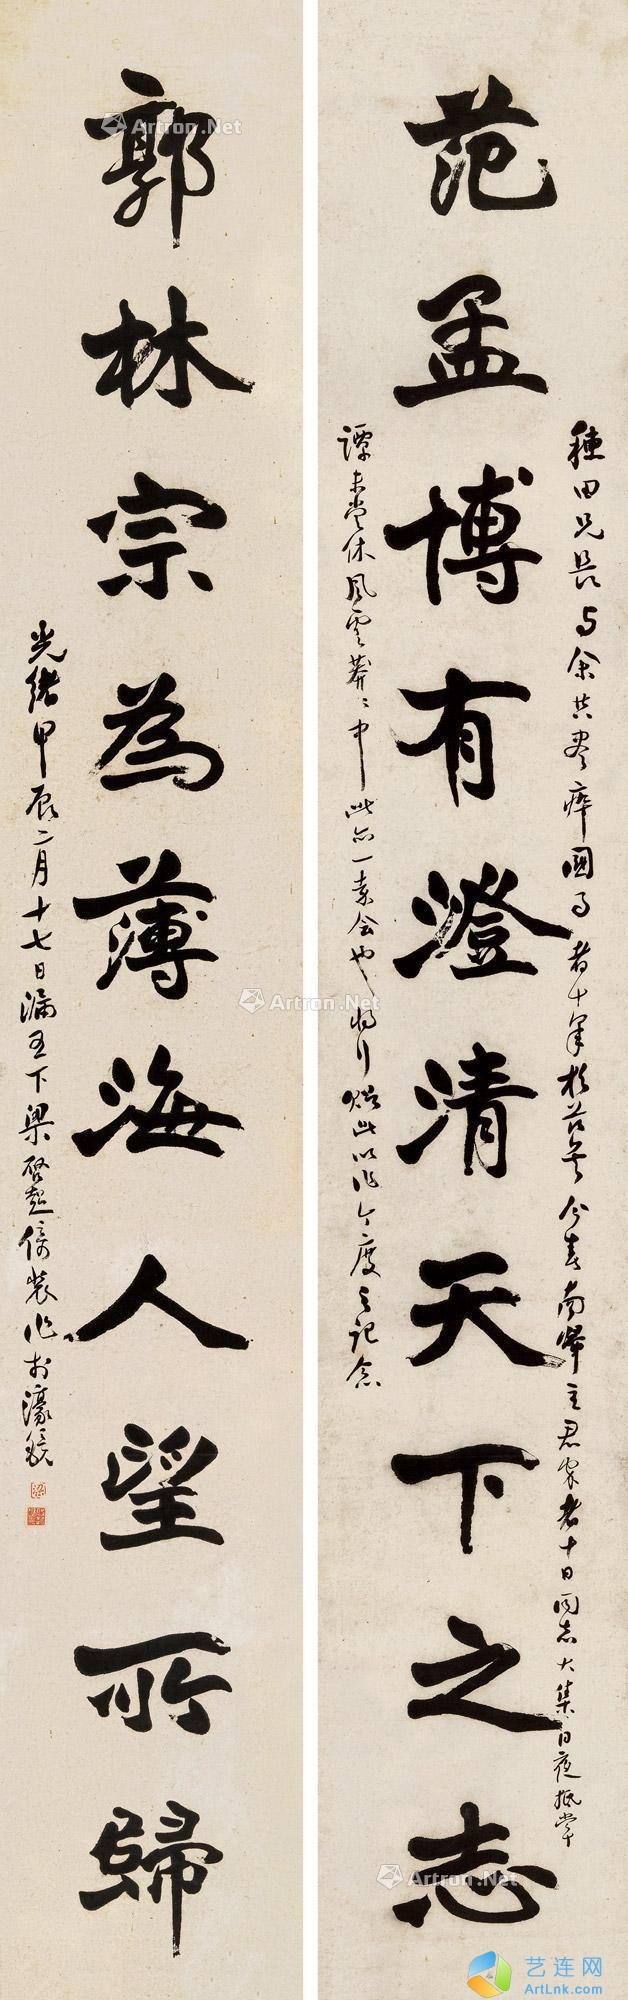 范孟博有澄清天下之志
穗田兄長与余共盡瘁國事者十年於茲矣今春南歸主君家者十日同志大集日夜抵掌
譚未嘗休風雲莽〻中此亦一素会也将行題此以作今度之記念
郭林宗為薄海人望所歸
光緒甲辰二月十七日漏五下梁啓超倚裝作於濠鏡
Artron.Net
Artron.Net
Artron.Net
Artron.Net
Artron.Net
艺连网
ArtLnk.com